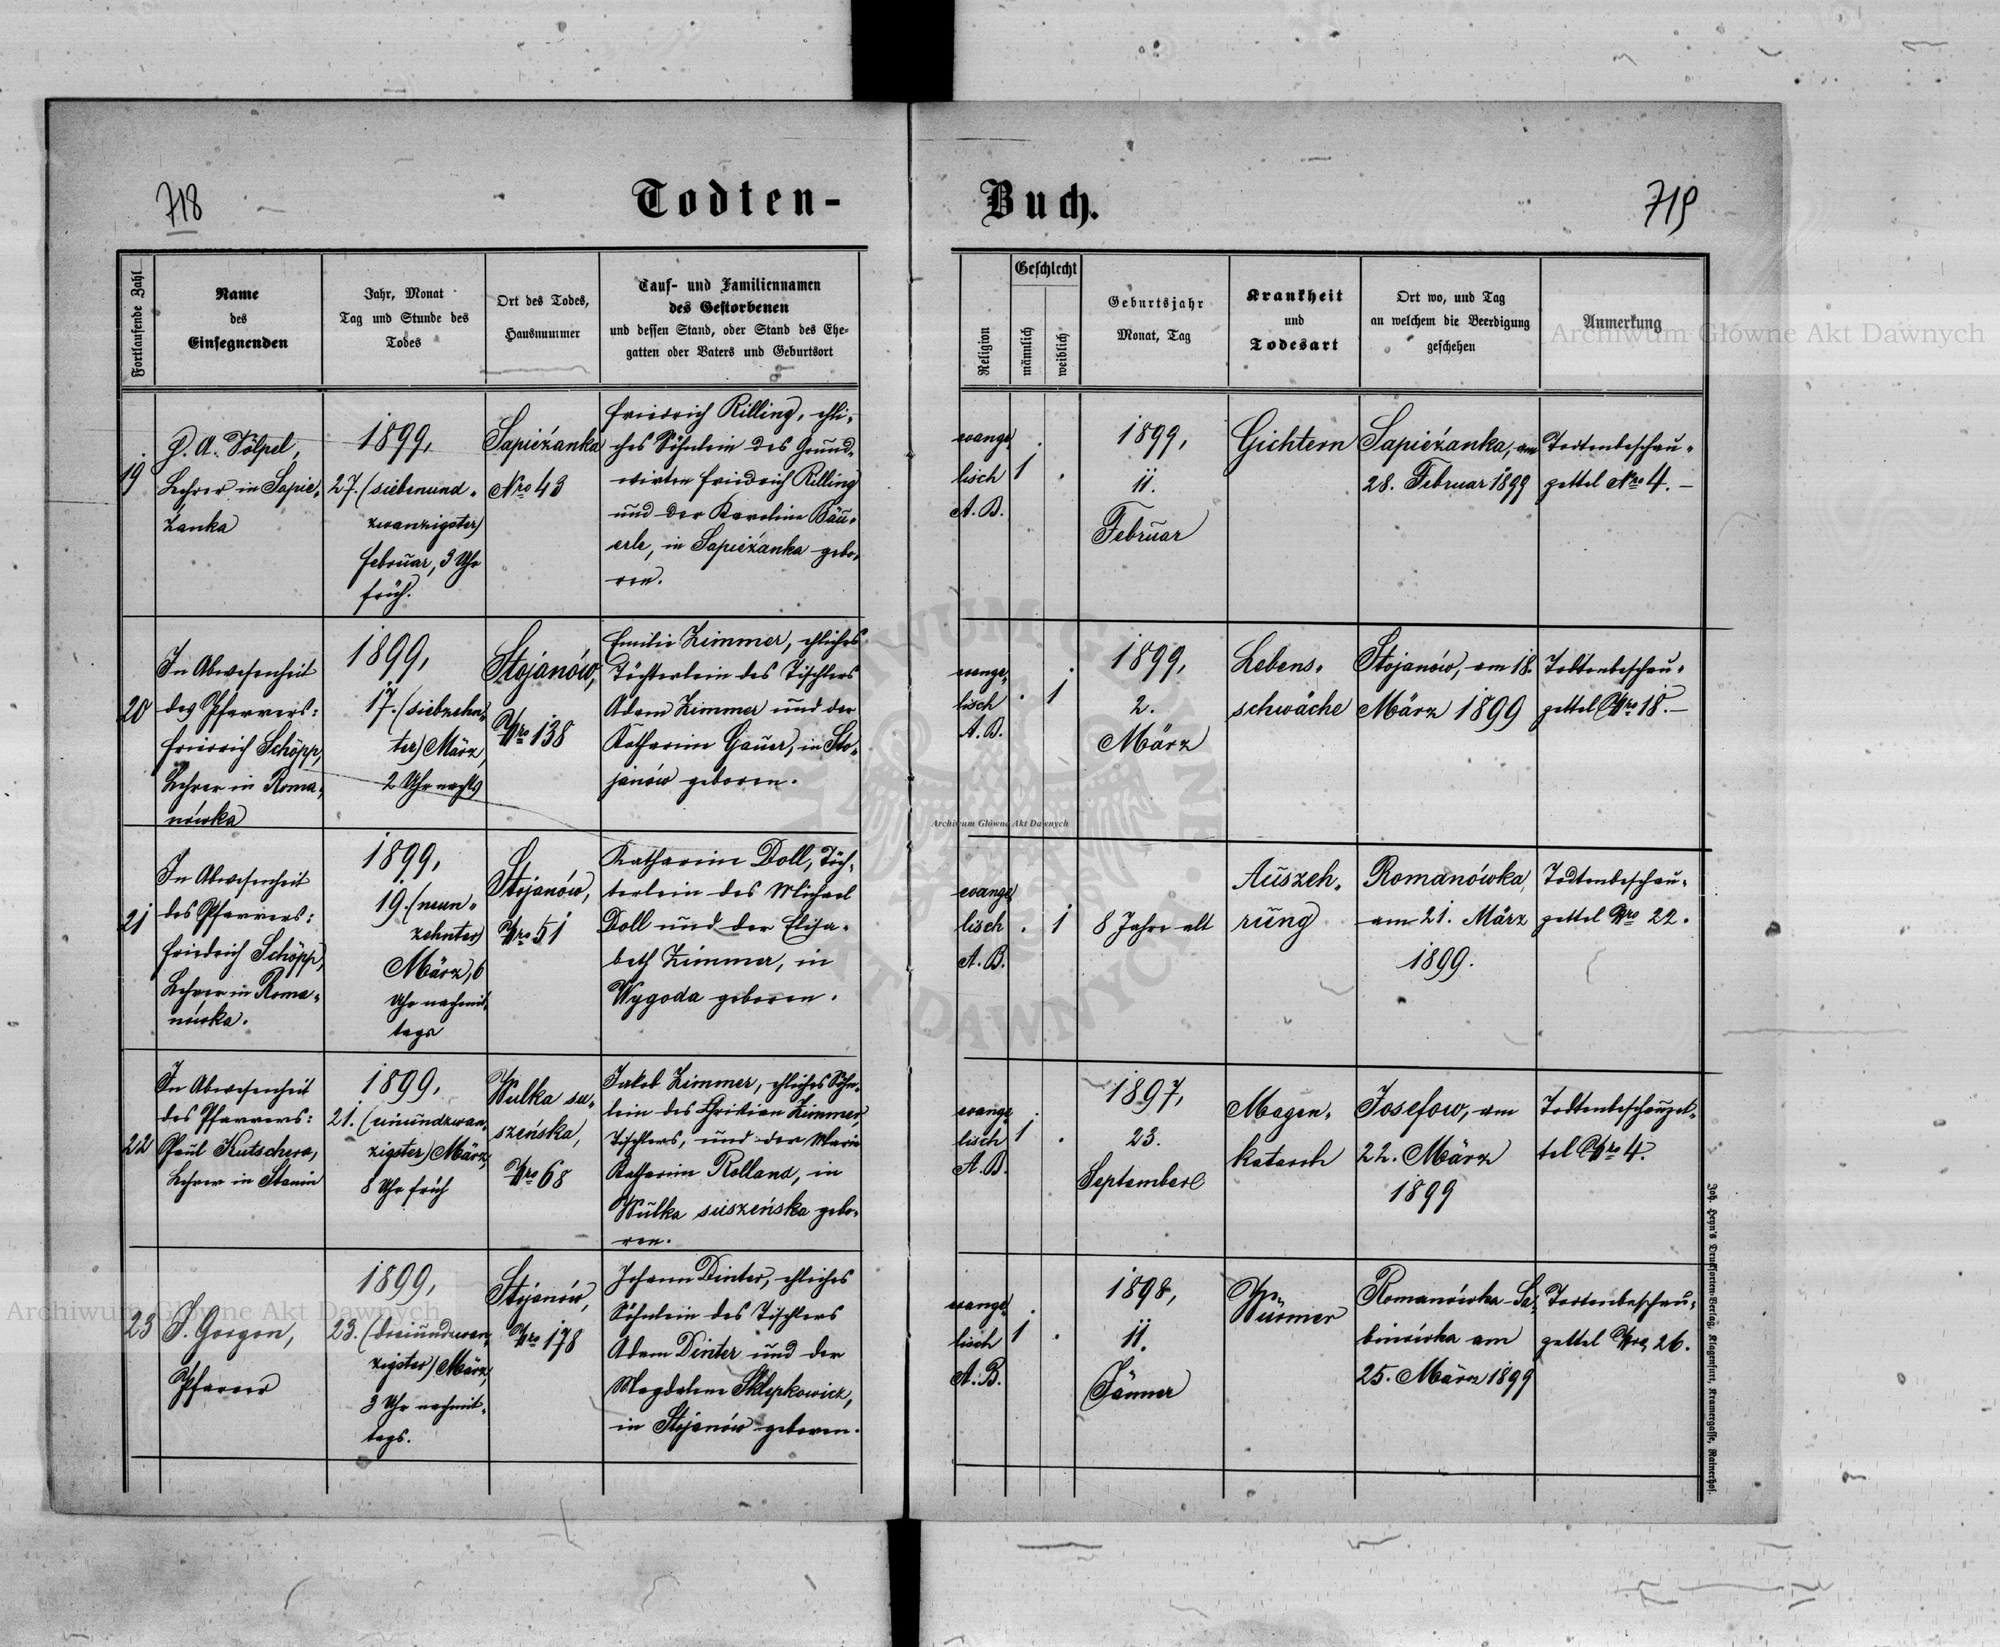 718
Todten-
Buch.
719
Fortlaufende Zahl
Name
des
Einsegnenden
Jahr, Monat
Tag und Stunde des
Todes
Ort des Todes,
Hausnummer
Tauf- und Familiennamen
des Gestorbenen
und dessen Stand, oder Stand des Ehe-
gatten oder Vaters und Geburtsort
Religion
Geschlecht
männlich
weiblich
Geburtsjahr
Monat, Tag
Krankheit
und
Todesart
Ort wo, und Tag
an welchem die Beerdigung
geschehen
Anmerkung
Archiwum Główne Akt Dawnych
19
A. Völpel,
Lehrer in Sapie-
żanka
1899,
27. (siebenund-
zwanzigster)
Februar, 3 Uhr
früh.
Sapieżanka
Nro 43
Friedrich Rilling, ehli-
ches Söhnlein des Grund-
wirten Friedrich Rilling
und der Karoline Bäu-
erle, in Sapieżanka gebo-
ren.
evange-
lisch
A. B.
1
1899,
11.
Februar
Gichtern
Sapieżanka, am
28. Februar 1899
Todtenbeschau-
zettel Nro 4.-
20
In Abwesenheit
des Pfarrers:
Friedrich Schöpp,
Lehrer in Roma-
nówka
1899,
17. (siebzehn-
ter) März,
2 Uhr nachts
Stojanów,
Nro 138
Emilie Zimmer, ehliches
Töchterlein des Tischlers
Adam Zimmer und der
Katharina Gauer, in Sto-
janów geboren.
evange-
lisch
A. B.
1
1899,
2.
März
Lebens-
schwäche
Stojanów, am 18.
März 1899
Todtenbeschau-
zettel Nro 18.-
21
In Abwesenheit
des Pfarrers:
Friedrich Schöpp,
Lehrer in Roma-
nówka.
1899,
19. (neun-
zehnter)
März, 6
Uhr nachmit-
tags
Stojanów,
Nro 51
Katharina Doll, Töch-
terlein des Michael
Doll und der Elisa-
beth Zimmer, in
Wygoda geboren.
evange-
lisch
A. B.
1
8 Jahre alt
Auszeh-
rung
Romanówka,
am 21. März
1899.
Todtenbeschau-
zettel Nro 22.
22
In Abwesenheit
des Pfarrers:
Paul Kutschera,
Lehrer in Stanin
1899,
21. (einundzwan-
zigster) März,
8 Uhr früh
Wulka su-
szeńska,
Nro 68
Jakob Zimmer, ehliches Söhn-
lein des Christian Zimmer,
Tischlers, und der Maria
Katharina Rolland, in
Wulka suszeńska gebo-
ren.
evange-
lisch
A. B.
1
1897,
23.
September
Magen-
katarrh
Josefow, am
22. März
1899
Todtenbeschauzet-
tel Nro 4.
23
J. Gorgon,
Pfarrer
1899,
23. (dreiundzwan-
zigster) März,
3 Uhr nachmit-
tags.
Stojanów,
Nro 178
Johann Dinter, ehliches
Söhnlein des Tischlers
Adam Dinter und der
Magdalena Sklepkowicz,
in Stojanów geboren.
evange-
lisch
A. B.
1
1898,
11.
Jänner
Würmer
Romanówka-Sa-
binówka am
25. März 1899
Todtenbeschau-
zettel Nro 26.
Archiwum Główne Akt Dawnych
Archiwum Główne Akt Dawnych
Joh. Heyn's Drucksorten-Verlag, Klagenfurt, Kramergasse, Rainerhof.